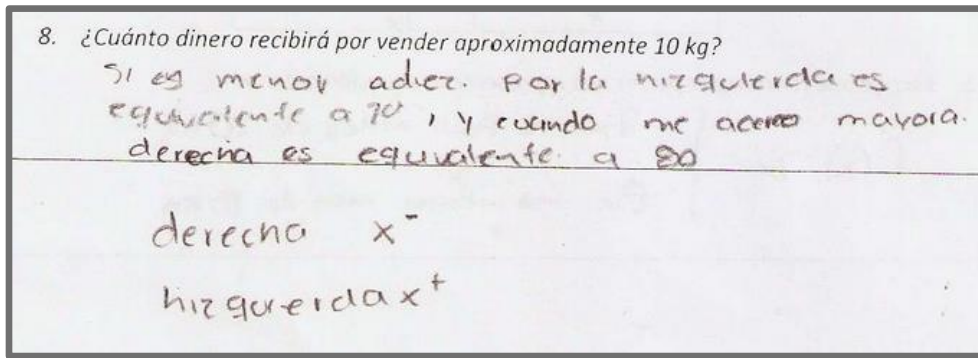 8. ¿Cuánto dinero recibirá por vender aproximadamente 10 kg?
Si es menor adiez. Por la hizquierda es
equivalente a 70, y cuando me acerco mayora.
derecha es equivalente. a 80
derecha x⁻
hizquierda x⁺